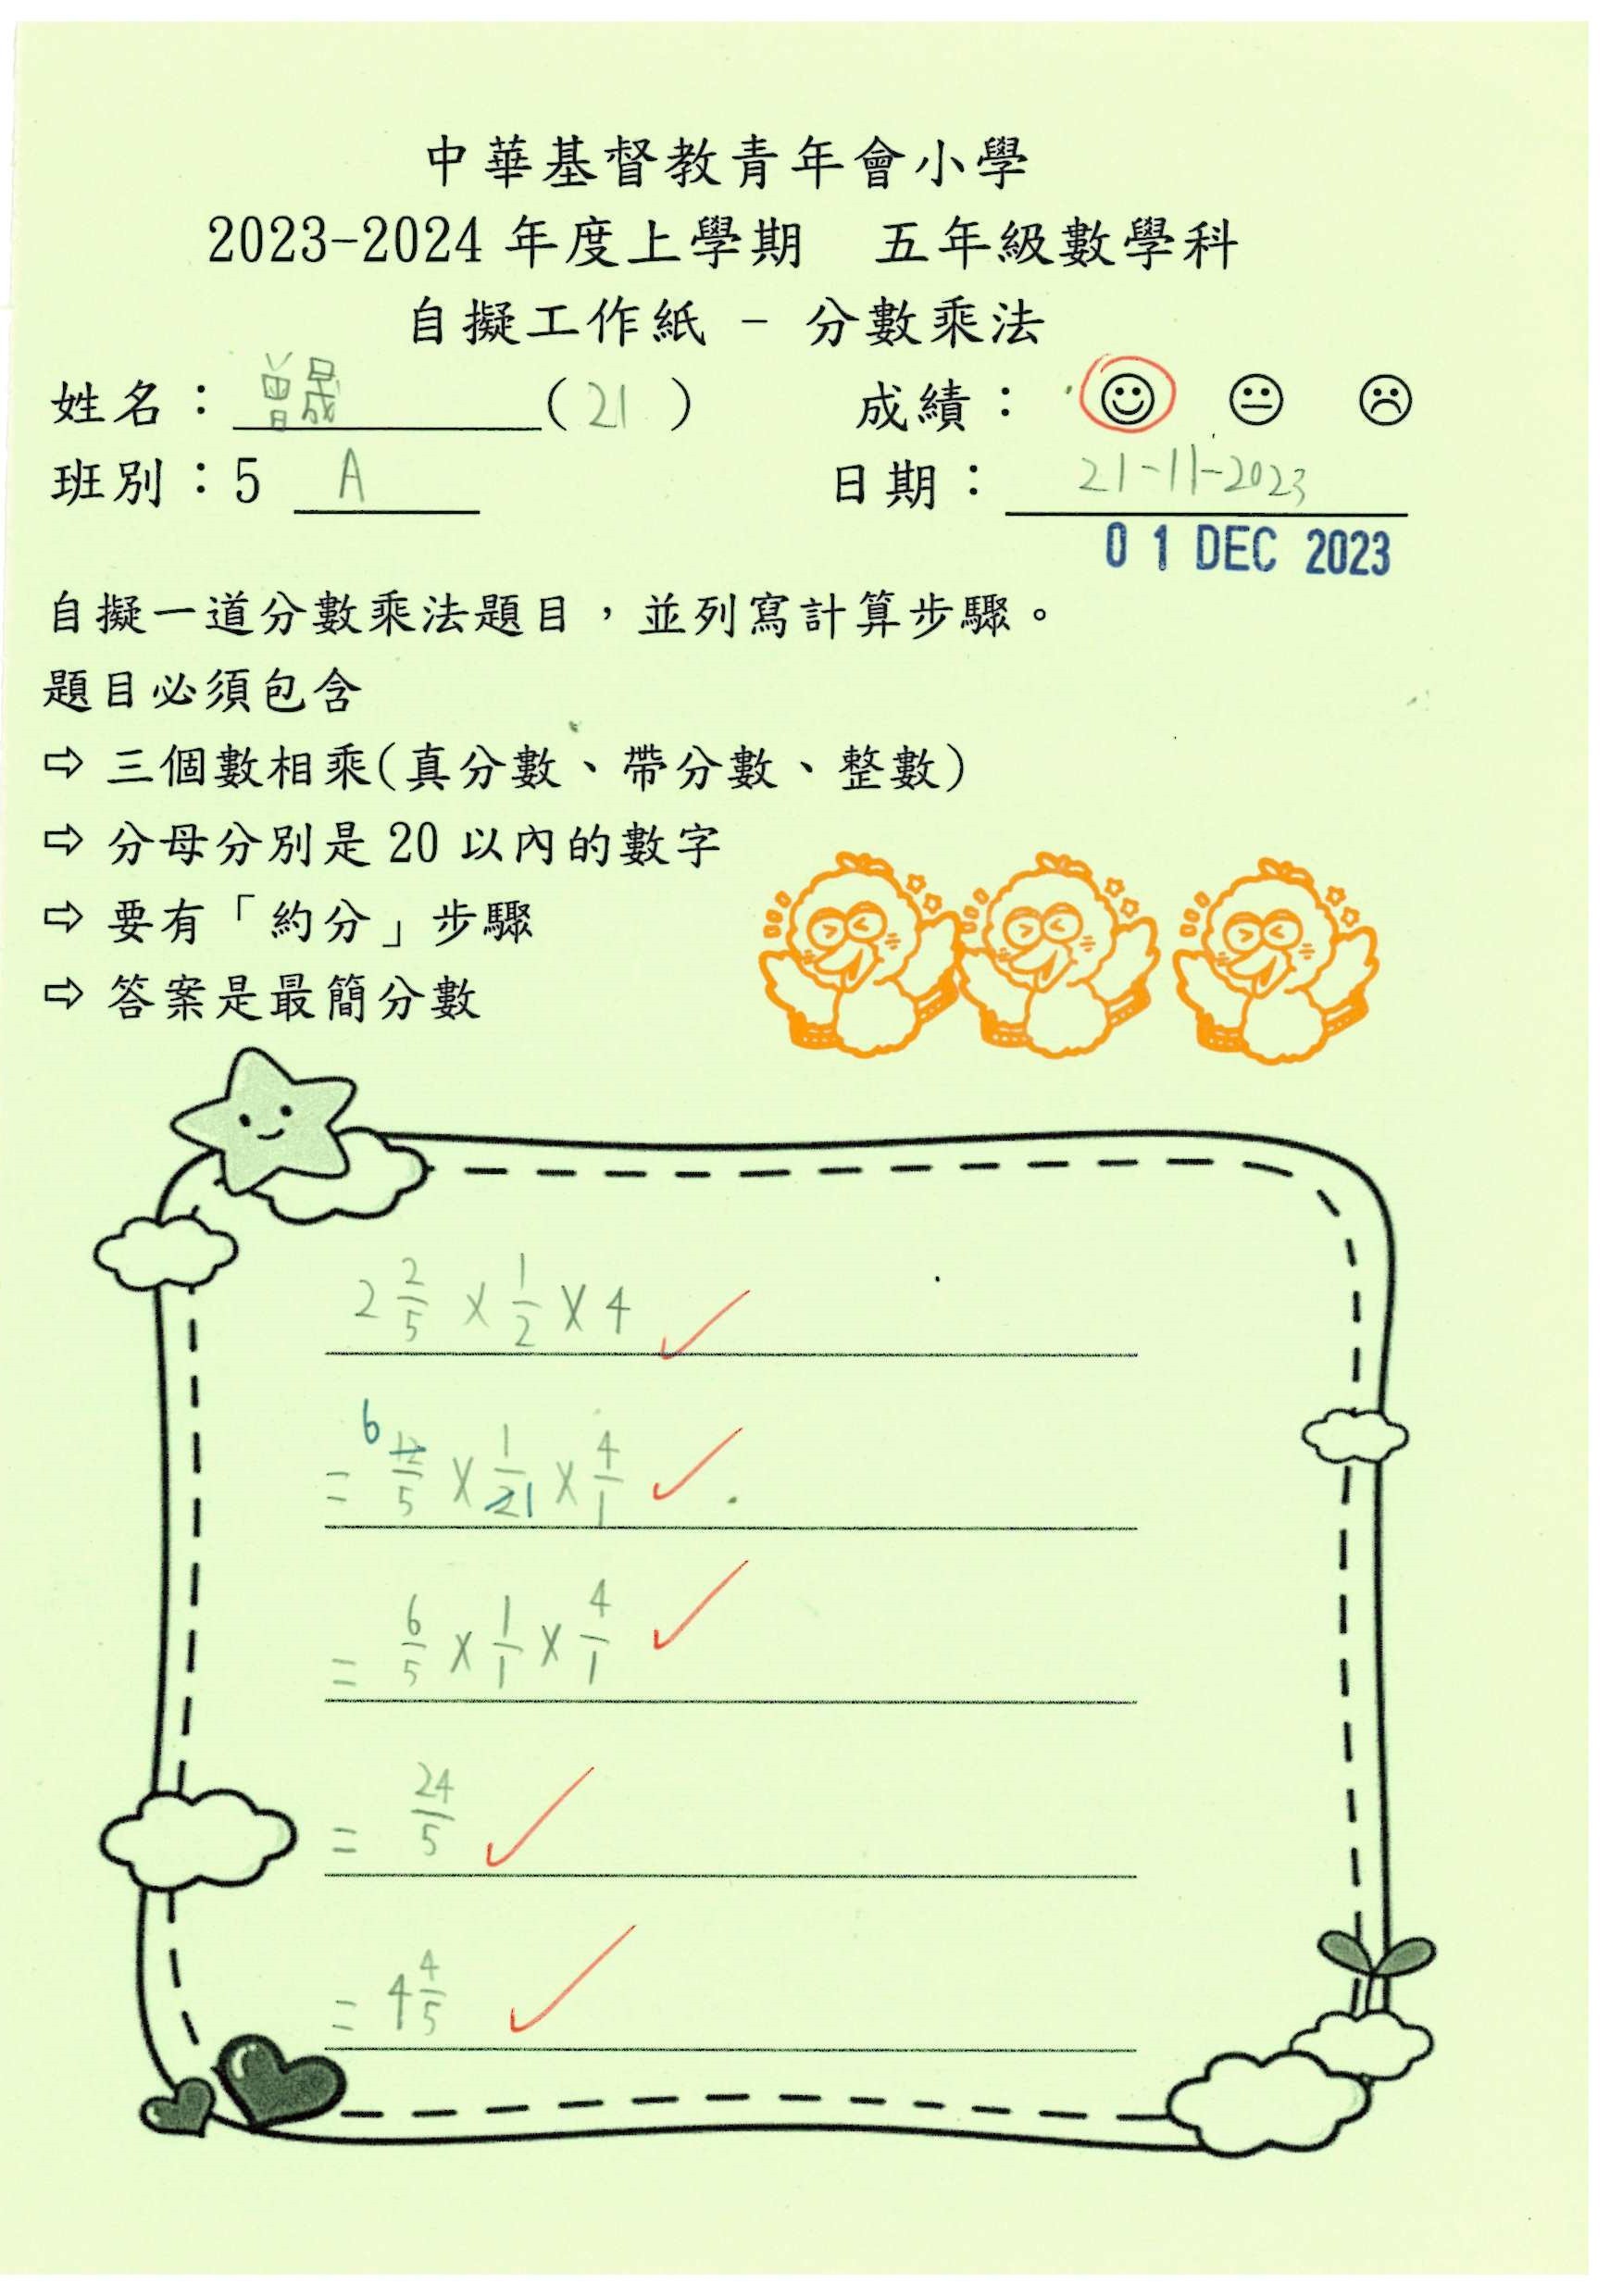 中華基督教青年會小學
2023-2024 年度上學期 五年級數學科
自擬工作紙 - 分數乘法
姓名：曾晟 (21) 成績：
班別：5 A 日期：21-11-2023
01 DEC 2023
自擬一道分數乘法題目，並列寫計算步驟。
題目必須包含
⇨ 三個數相乘(真分數、帶分數、整數)
⇨ 分母分別是 20 以內的數字
⇨ 要有「約分」步驟
⇨ 答案是最簡分數
2 2/5 × 1/2 × 4
= 6 12/5 × 1/2 1 × 4/1
= 6/5 × 1/1 × 4/1
= 24/5
= 4 4/5